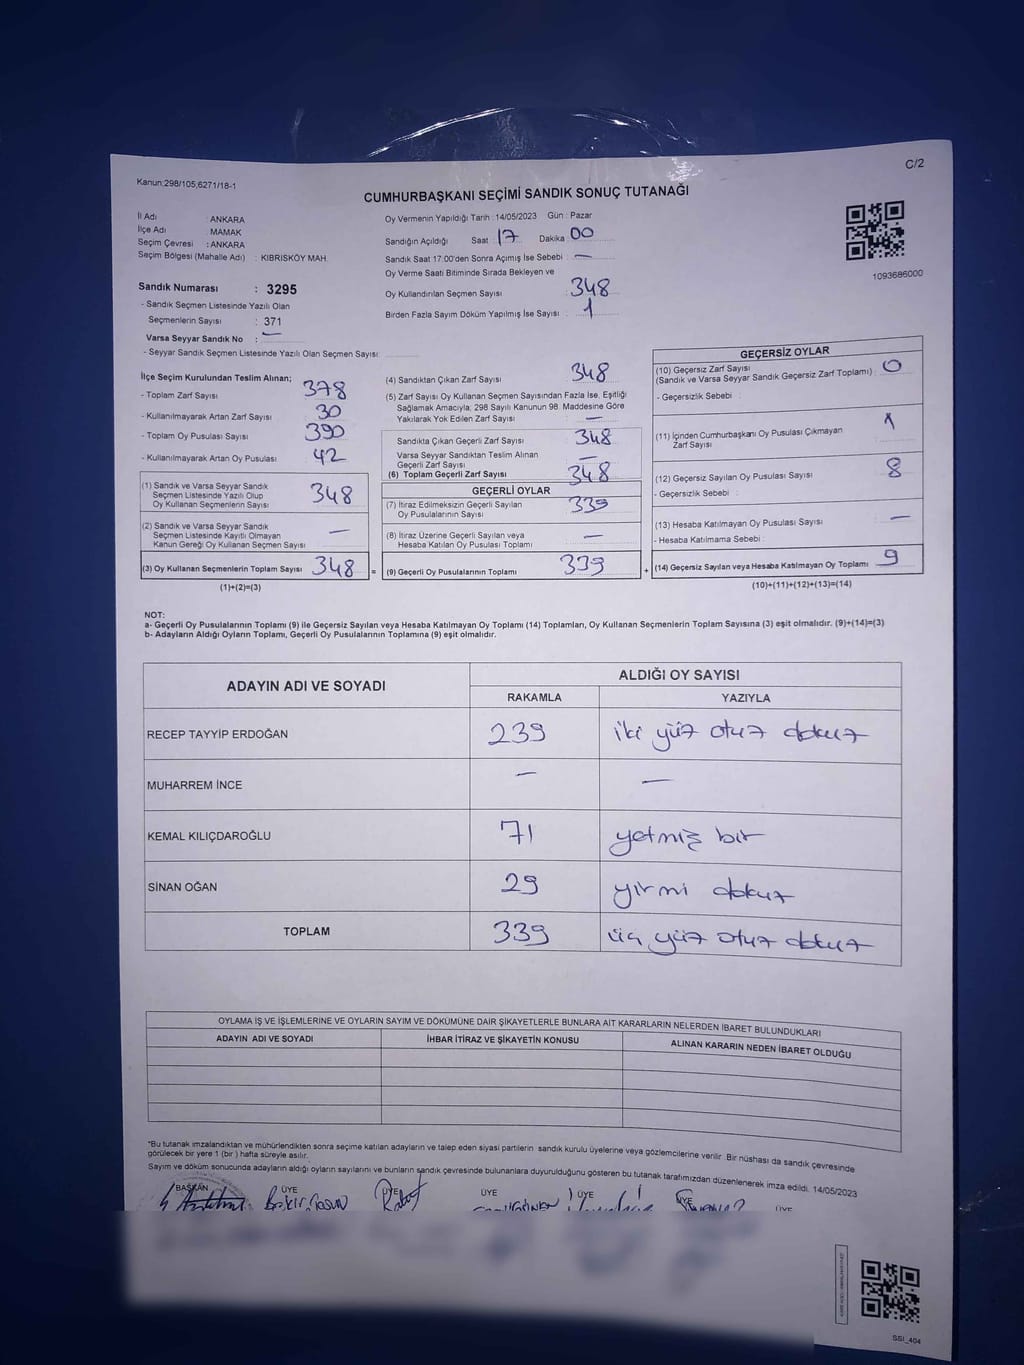 C/2
Kanun:298/105,6271/18-1
CUMHURBAŞKANI SEÇİMİ SANDIK SONUÇ TUTANAĞI
İl Adı : ANKARA
İlçe Adı : MAMAK
Seçim Çevresi : ANKARA
Seçim Bölgesi (Mahalle Adı) : KIBRISKÖY MAH.
Sandık Numarası : 3295
- Sandık Seçmen Listesinde Yazılı Olan
Seçmenlerin Sayısı : 371
Varsa Seyyar Sandık No : —
- Seyyar Sandık Seçmen Listesinde Yazılı Olan Seçmen Sayısı:
Oy Vermenin Yapıldığı Tarih : 14/05/2023 Gün : Pazar
Sandığın Açıldığı Saat : 17 Dakika : 00
Sandık Saat 17:00'den Sonra Açımış İse Sebebi : —
Oy Verme Saati Bitiminde Sırada Bekleyen ve
Oy Kullandırılan Seçmen Sayısı : 348
Birden Fazla Sayım Döküm Yapılmış İse Sayısı : 1
1093686000
İlçe Seçim Kurulundan Teslim Alınan;
- Toplam Zarf Sayısı : 378
- Kullanılmayarak Artan Zarf Sayısı : 30
- Toplam Oy Pusulası Sayısı : 390
- Kullanılmayarak Artan Oy Pusulası : 42
(1) Sandık ve Varsa Seyyar Sandık
Seçmen Listesinde Yazılı Olup
Oy Kullanan Seçmenlerin Sayısı 348
(2) Sandık ve Varsa Seyyar Sandık
Seçmen Listesinde Kayıtlı Olmayan
Kanun Gereği Oy Kullanan Seçmen Sayısı —
(3) Oy Kullanan Seçmenlerin Toplam Sayısı 348 =
(1)+(2)=(3)
(4) Sandıktan Çıkan Zarf Sayısı : 348
(5) Zarf Sayısı Oy Kullanan Seçmen Sayısından Fazla İse, Eşitliği
Sağlamak Amacıyla; 298 Sayılı Kanunun 98. Maddesine Göre
Yakılarak Yok Edilen Zarf Sayısı : —
Sandıkta Çıkan Geçerli Zarf Sayısı : 348
Varsa Seyyar Sandıktan Teslim Alınan
Geçerli Zarf Sayısı : —
(6) Toplam Geçerli Zarf Sayısı : 348
GEÇERLİ OYLAR
(7) İtiraz Edilmeksizin Geçerli Sayılan
Oy Pusulalarının Sayısı : 339
(8) İtiraz Üzerine Geçerli Sayılan veya
Hesaba Katılan Oy Pusulası Toplamı : —
(9) Geçerli Oy Pusulalarının Toplamı : 339 +
GEÇERSİZ OYLAR
(10) Geçersiz Zarf Sayısı
(Sandık ve Varsa Seyyar Sandık Geçersiz Zarf Toplamı) : 0
- Geçersizlik Sebebi :
(11) İçinden Cumhurbaşkanı Oy Pusulası Çıkmayan
Zarf Sayısı : 1
(12) Geçersiz Sayılan Oy Pusulası Sayısı : 8
- Geçersizlik Sebebi :
(13) Hesaba Katılmayan Oy Pusulası Sayısı : —
- Hesaba Katılmama Sebebi :
(14) Geçersiz Sayılan veya Hesaba Katılmayan Oy Toplamı : 9
(10)+(11)+(12)+(13)=(14)
NOT:
a- Geçerli Oy Pusulalarının Toplamı (9) ile Geçersiz Sayılan veya Hesaba Katılmayan Oy Toplamı (14) Toplamları, Oy Kullanan Seçmenlerin Toplam Sayısına (3) eşit olmalıdır. (9)+(14)=(3)
b- Adayların Aldığı Oyların Toplamı, Geçerli Oy Pusulalarının Toplamına (9) eşit olmalıdır.
ADAYIN ADI VE SOYADI ALDIĞI OY SAYISI
RAKAMLA YAZIYLA
RECEP TAYYİP ERDOĞAN 239 iki yüz otuz dokuz
MUHARREM İNCE — —
KEMAL KILIÇDAROĞLU 71 yetmiş bir
SİNAN OĞAN 29 yirmi dokuz
TOPLAM 339 üç yüz otuz dokuz
OYLAMA İŞ VE İŞLEMLERİNE VE OYLARIN SAYIM VE DÖKÜMÜNE DAİR ŞİKAYETLERLE BUNLARA AİT KARARLARIN NELERDEN İBARET BULUNDUKLARI
ADAYIN ADI VE SOYADI İHBAR İTİRAZ VE ŞİKAYETİN KONUSU ALINAN KARARIN NEDEN İBARET OLDUĞU
*Bu tutanak imzalandıktan ve mühürlendikten sonra seçime katılan adayların ve talep eden siyasi partilerin sandık kurulu üyelerine veya gözlemcilerine verilir. Bir nüshası da sandık çevresinde
görülecek bir yere 1 (bir ) hafta süreyle asılır.
Sayım ve döküm sonucunda adayların aldığı oyların sayılarını ve bunların sandık çevresinde bulunanlara duyurulduğunu gösteren bu tutanak tarafımızdan düzenlenerek imza edildi. 14/05/2023
BAŞKAN ÜYE ÜYE ÜYE ÜYE ÜYE ÜYE
SSI_404